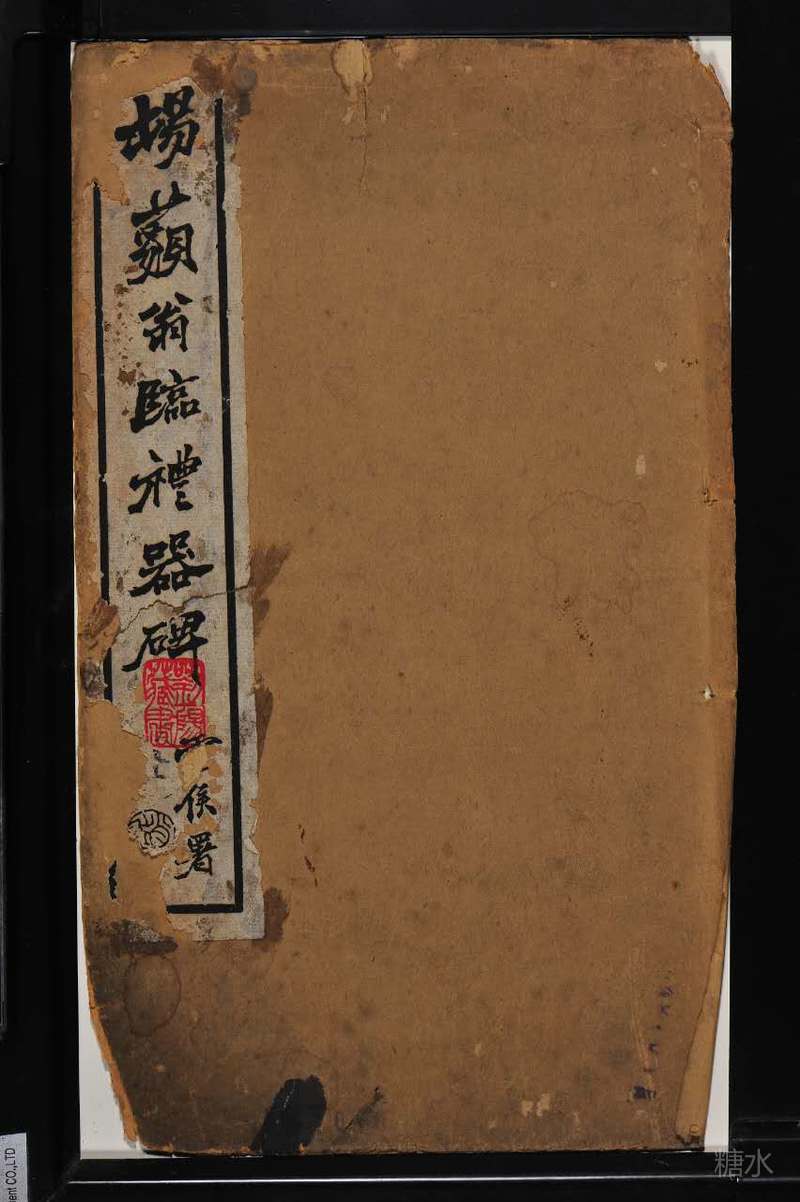 楊藐翁臨禮器碑
侯署
糖水
ent CO.,LTD